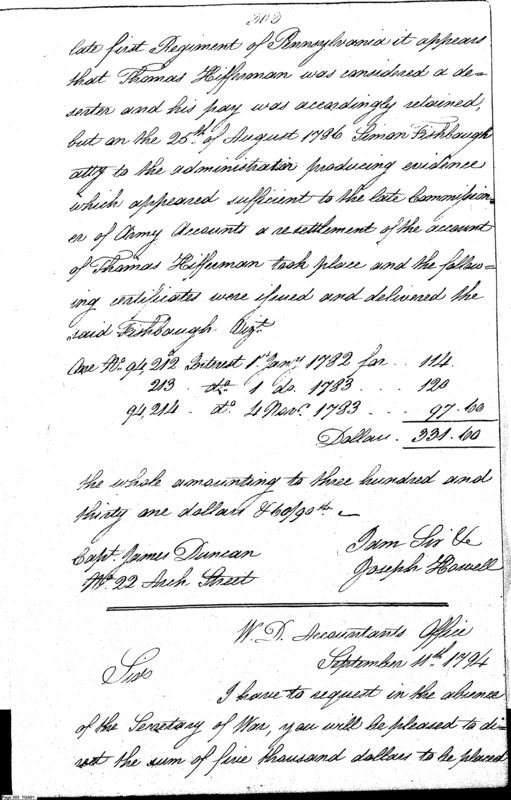 303
late first Regiment of Pennsylvania it appears
that Thomas Hifferman was considered a de=
serter and his pay was accordingly retained,
but on the 25th of August 1786 Simon Fishbaugh
atty to the administrator producing evidence
which appeared sufficient to the late Commission=
er of Army Accounts a resettlement of the account
of Thomas Hifferman took place and the follow=
ing certificates were issued and delivered the
said Fishbaugh. Vizt.
One No. 94,212 Interest 1st Jany 1782 for .. 114.
213 . do 1 do. 1783 . . . . 120
94,214 . do 4 Novr. 1783 . . . 97.60
Dollars . 331.60
the whole amounting to three hundred and
thirty one dollars & 60/90ths
Capt. James Duncan
No. 22 Arch Street
I am Sir &c
Joseph Howell
W. D. Accountants Office
September 11th 1794
Sir
I have to request in the absence
of the Secretary of War, you will be pleased to di=
rect the sum of five thousand dollars to be placed